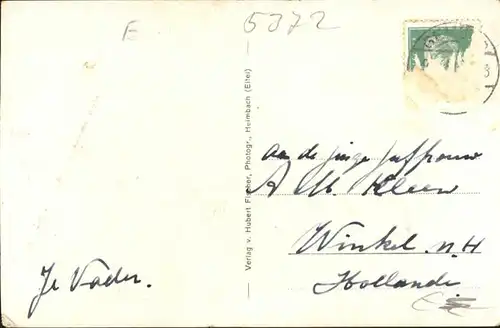 E
5372
Aan de jonge Juffrouw
A M. Kleen
Winkel. N.H
Hollande
Je Vader.
Verlag v. Hubert Fischer, Photogr., Heimbach (Eifel)